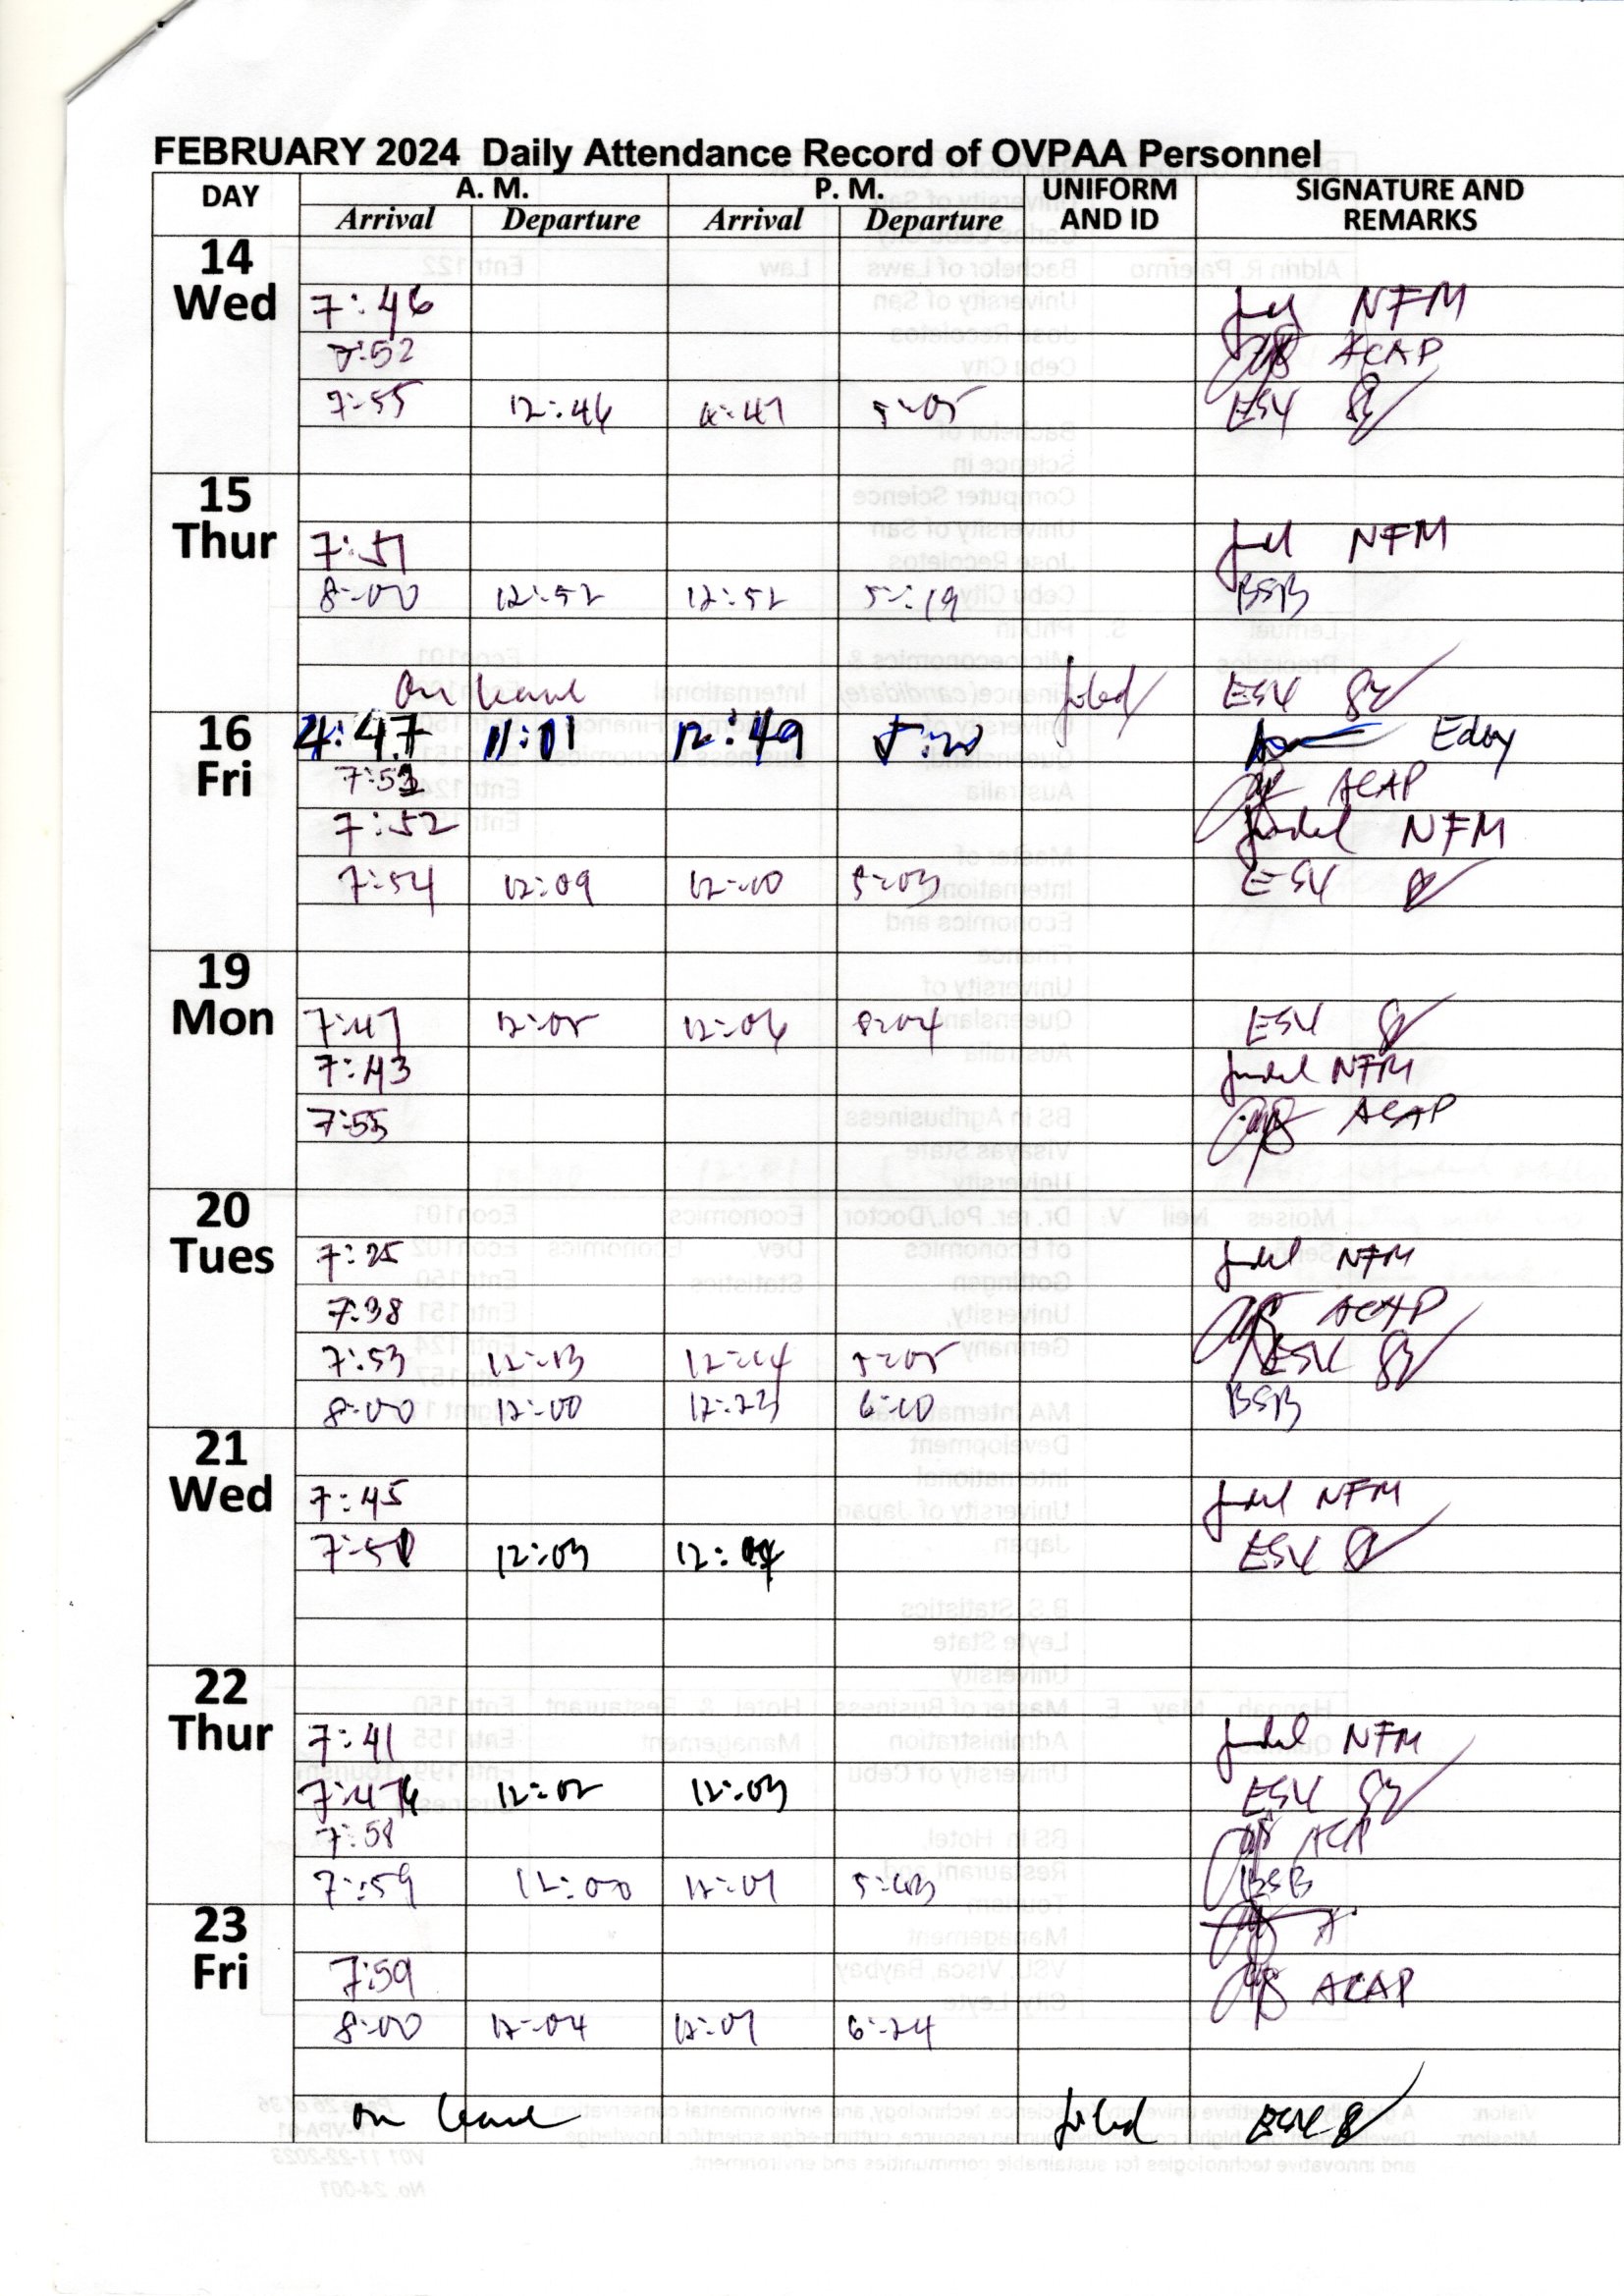 FEBRUARY 2024 Daily Attendance Record of OVPAA Personnel
DAY A. M. P. M. UNIFORM AND ID SIGNATURE AND REMARKS
Arrival Departure Arrival Departure
14 Wed
7:46 NFM
7:52 ACAP
7:55 12:46 12:47 5:05 ESY
15 Thur
7:51 NFM
8:00 12:52 12:52 5:19 BSB
On leave filed ESY
16 Fri
4:47 11:01 12:49 5:20 Edoy
7:53 ACAP
7:52 NFM
7:54 12:09 12:10 5:03 ESY
19 Mon
7:47 12:05 12:06 ESY
7:43 NFM
7:55 ACAP
20 Tues
7:25 NFM
7:38 ACAP
7:53 12:13 12:14 5:05 ESY
8:00 12:00 12:23 6:10 BSB
21 Wed
7:45 NFM
7:51 12:03 12:04 ESY
22 Thur
7:41 NFM
12:02 12:03 ESY
7:58 ACA
7:59 12:00 12:01 5:03 BSB
23 Fri
7:59 ACAP
8:00 12:04 12:07 6:24
on leave filed ESY